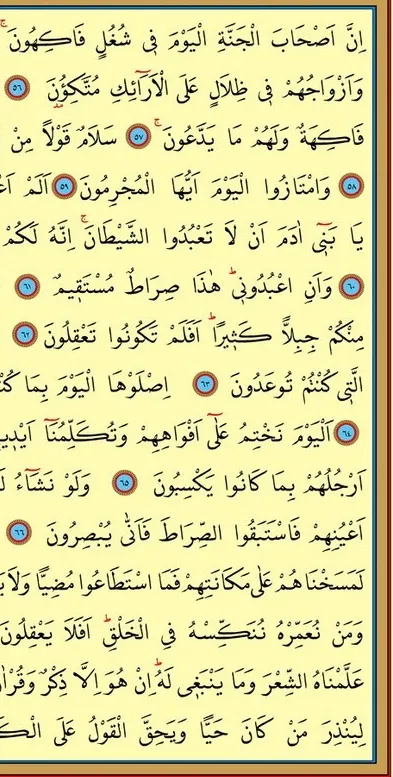 اِنَّ اَصْحَابَ الْجَنَّةِ الْيَوْمَ ف۪ي شُغُلٍ فَاكِهُونَۚ
وَاَزْوَاجُهُمْ ف۪ي ظِلَالٍ عَلَى الْاَرَٓائِكِ مُتَّكِؤُ۫نَ ٥٦
فَاكِهَةٌ وَلَهُمْ مَا يَدَّعُونَۚ ٥٧ سَلَامٌ قَوْلًا مِنْ
٥٨ وَامْتَازُوا الْيَوْمَ اَيُّهَا الْمُجْرِمُونَ ٥٩ اَلَمْ
يَا بَن۪ٓي اٰدَمَ اَنْ لَا تَعْبُدُوا الشَّيْطَانَۚ اِنَّهُ لَكُمْ
٦٠ وَاَنِ اعْبُدُون۪يۜ هٰذَا صِرَاطٌ مُسْتَق۪يمٌ ٦١
مِنْكُمْ جِبِلًّا كَث۪يرًاۜ اَفَلَمْ تَكُونُوا تَعْقِلُونَ ٦٢
الَّت۪ي كُنْتُمْ تُوعَدُونَ ٦٣ اِصْلَوْهَا الْيَوْمَ بِمَا
٦٤ اَلْيَوْمَ نَخْتِمُ عَلٰٓى اَفْوَاهِهِمْ وَتُكَلِّمُنَٓا
اَرْجُلُهُمْ بِمَا كَانُوا يَكْسِبُونَ ٦٥ وَلَوْ نَشَٓاءُ
اَعْيُنِهِمْ فَاسْتَبَقُوا الصِّرَاطَ فَاَنّٰى يُبْصِرُونَ ٦٦
لَمَسَخْنَاهُمْ عَلٰى مَكَانَتِهِمْ فَمَا اسْتَطَاعُوا مُضِيًّا وَلَا
وَمَنْ نُعَمِّرْهُ نُنَكِّسْهُ فِي الْخَلْقِۜ اَفَلَا يَعْقِلُونَ
عَلَّمْنَاهُ الشِّعْرَ وَمَا يَنْبَغ۪ي لَهُۜ اِنْ هُوَ اِلَّا ذِكْرٌ
لِيُنْذِرَ مَنْ كَانَ حَيًّا وَيَحِقَّ الْقَوْلُ عَلَى